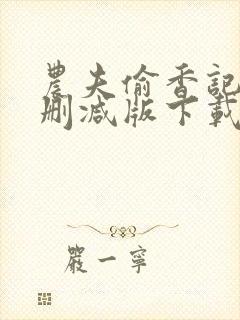 農夫偷香記
刪減版下載
嚴一寧